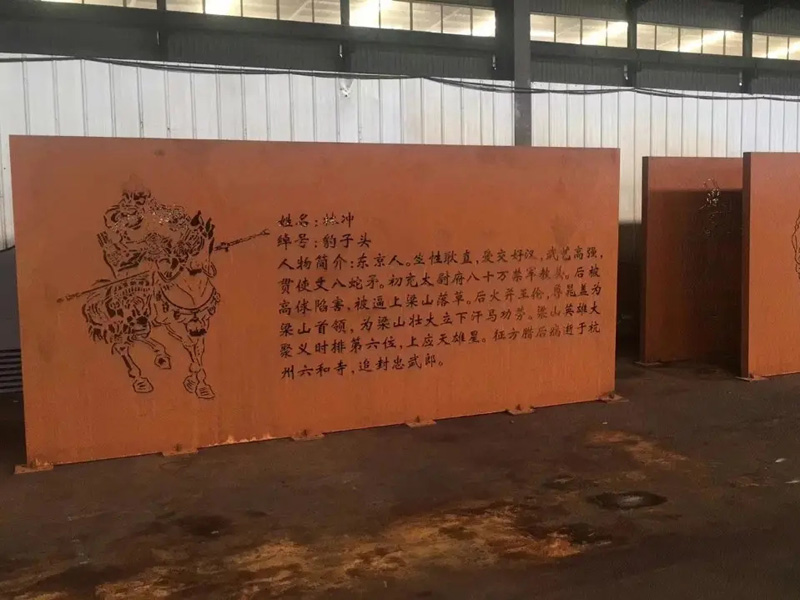 姓名：林冲
绰号：豹子头
人物简介：东京人。生性耿直，爱交好汉，武艺高强，
贯使丈八蛇矛。初充太尉府八十万禁军教头。后被
高俅陷害，被逼上梁山落草。后火并王伦，尊晁盖为
梁山首领，为梁山壮大立下汗马功劳。梁山英雄大
聚义时排第六位，上应天雄星。征方腊后病逝于杭
州六和寺，追封忠武郎。